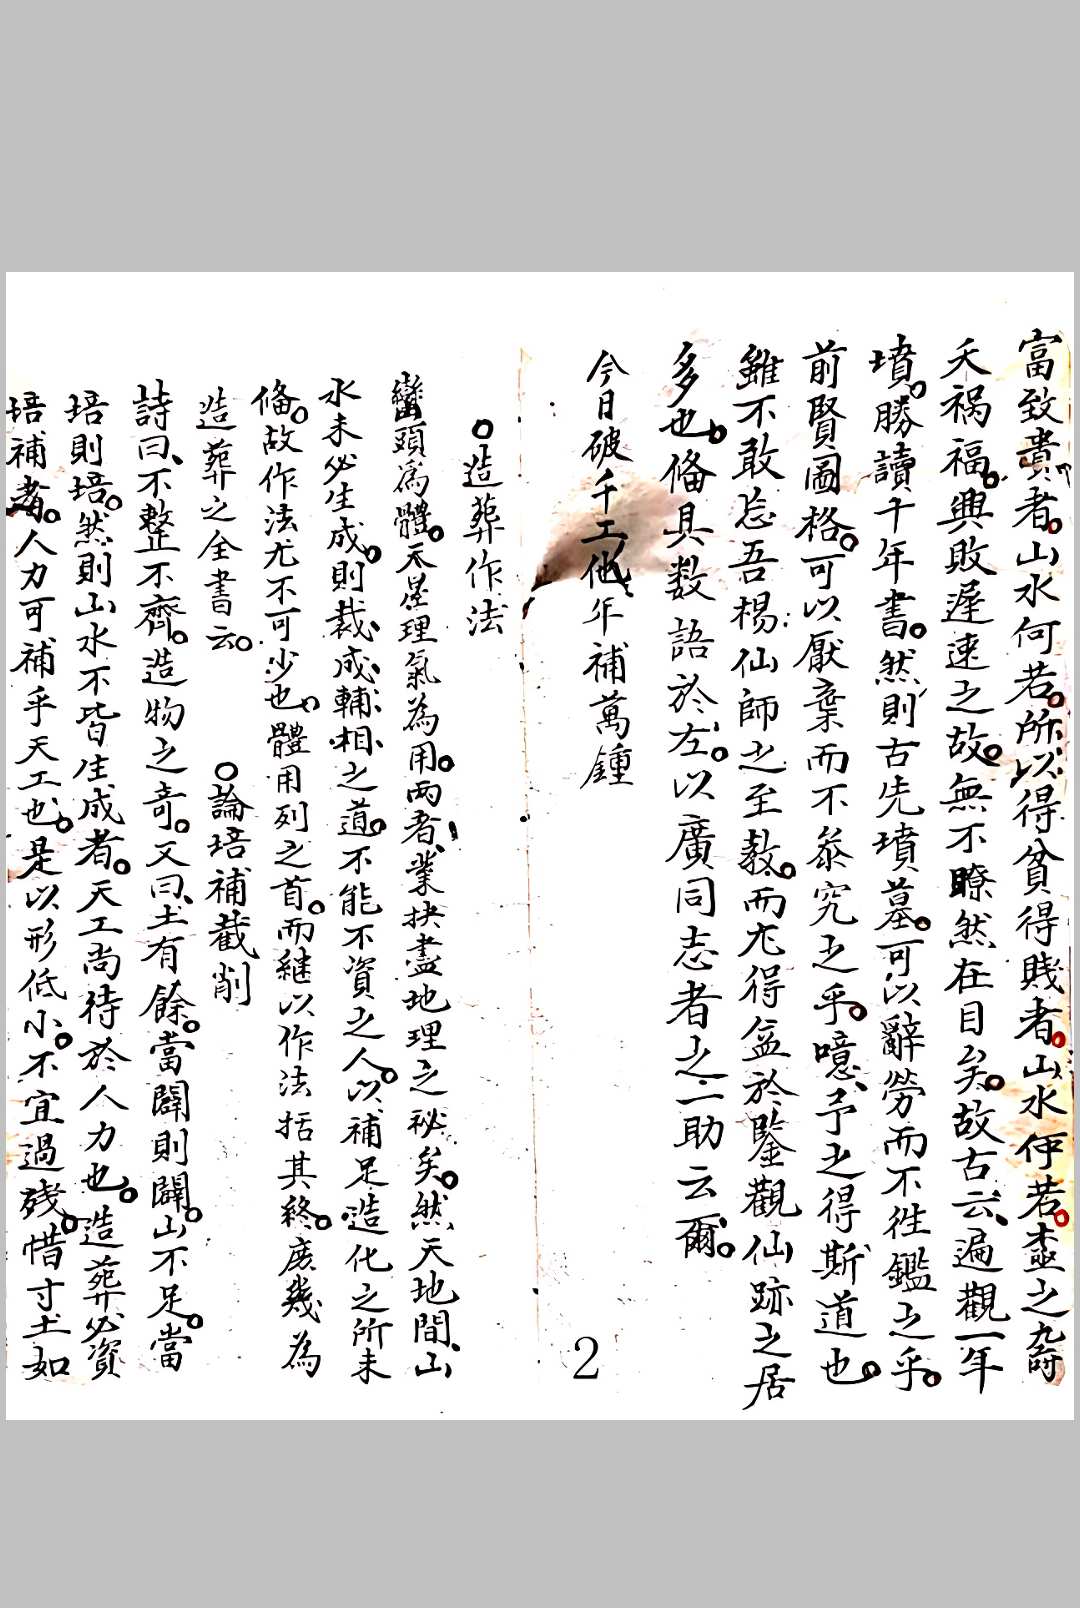 富致貴者。山水何若。所以得貧得賤者。山水伊若。壺之九壽
夭禍福。興敗遲速之故。無不瞭然在目矣。故古云、遍觀一年
墳。勝讀千年書。然則古先墳墓。可以辭勞而不徃鑑之乎。
前賢圖格。可以厭棄而不叅究之乎。噫、予之得斯道也。
雖不敢忘吾楊仙師之至教。而尤得益於鑒觀仙跡之居
多也。俻具数語於左。以廣同志者之一助云爾。
今日破千工他年補萬鍾
2
○造葬作法
巒頭為體。天星理氣為用。两者、業抉盡地理之秘矣。然天地間、山
水未必生成。則裁成輔相之道。不能不資之人。以補足造化之所未
俻。故作法尤不可少也。體用列之首。而継以作法括其終。庶幾為
造葬之全書云。
○論培補截削
詩曰、不整不齊。造物之奇。又曰、土有餘。當闢則闢。山不足。當
培則培。然則山水不皆生成者。天工尚待於人力也。造葬必資
培補者。人力可補乎天工也。是以形低小。不宜過殘。惜寸土如